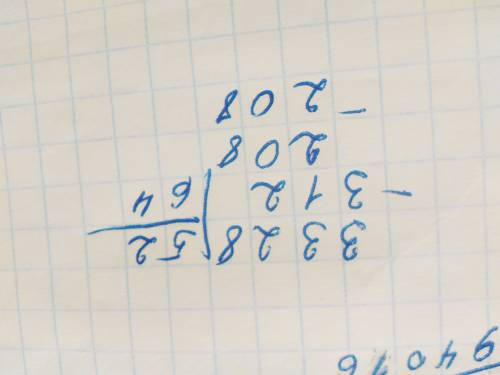 3328 52
- 312 64
208
- 208